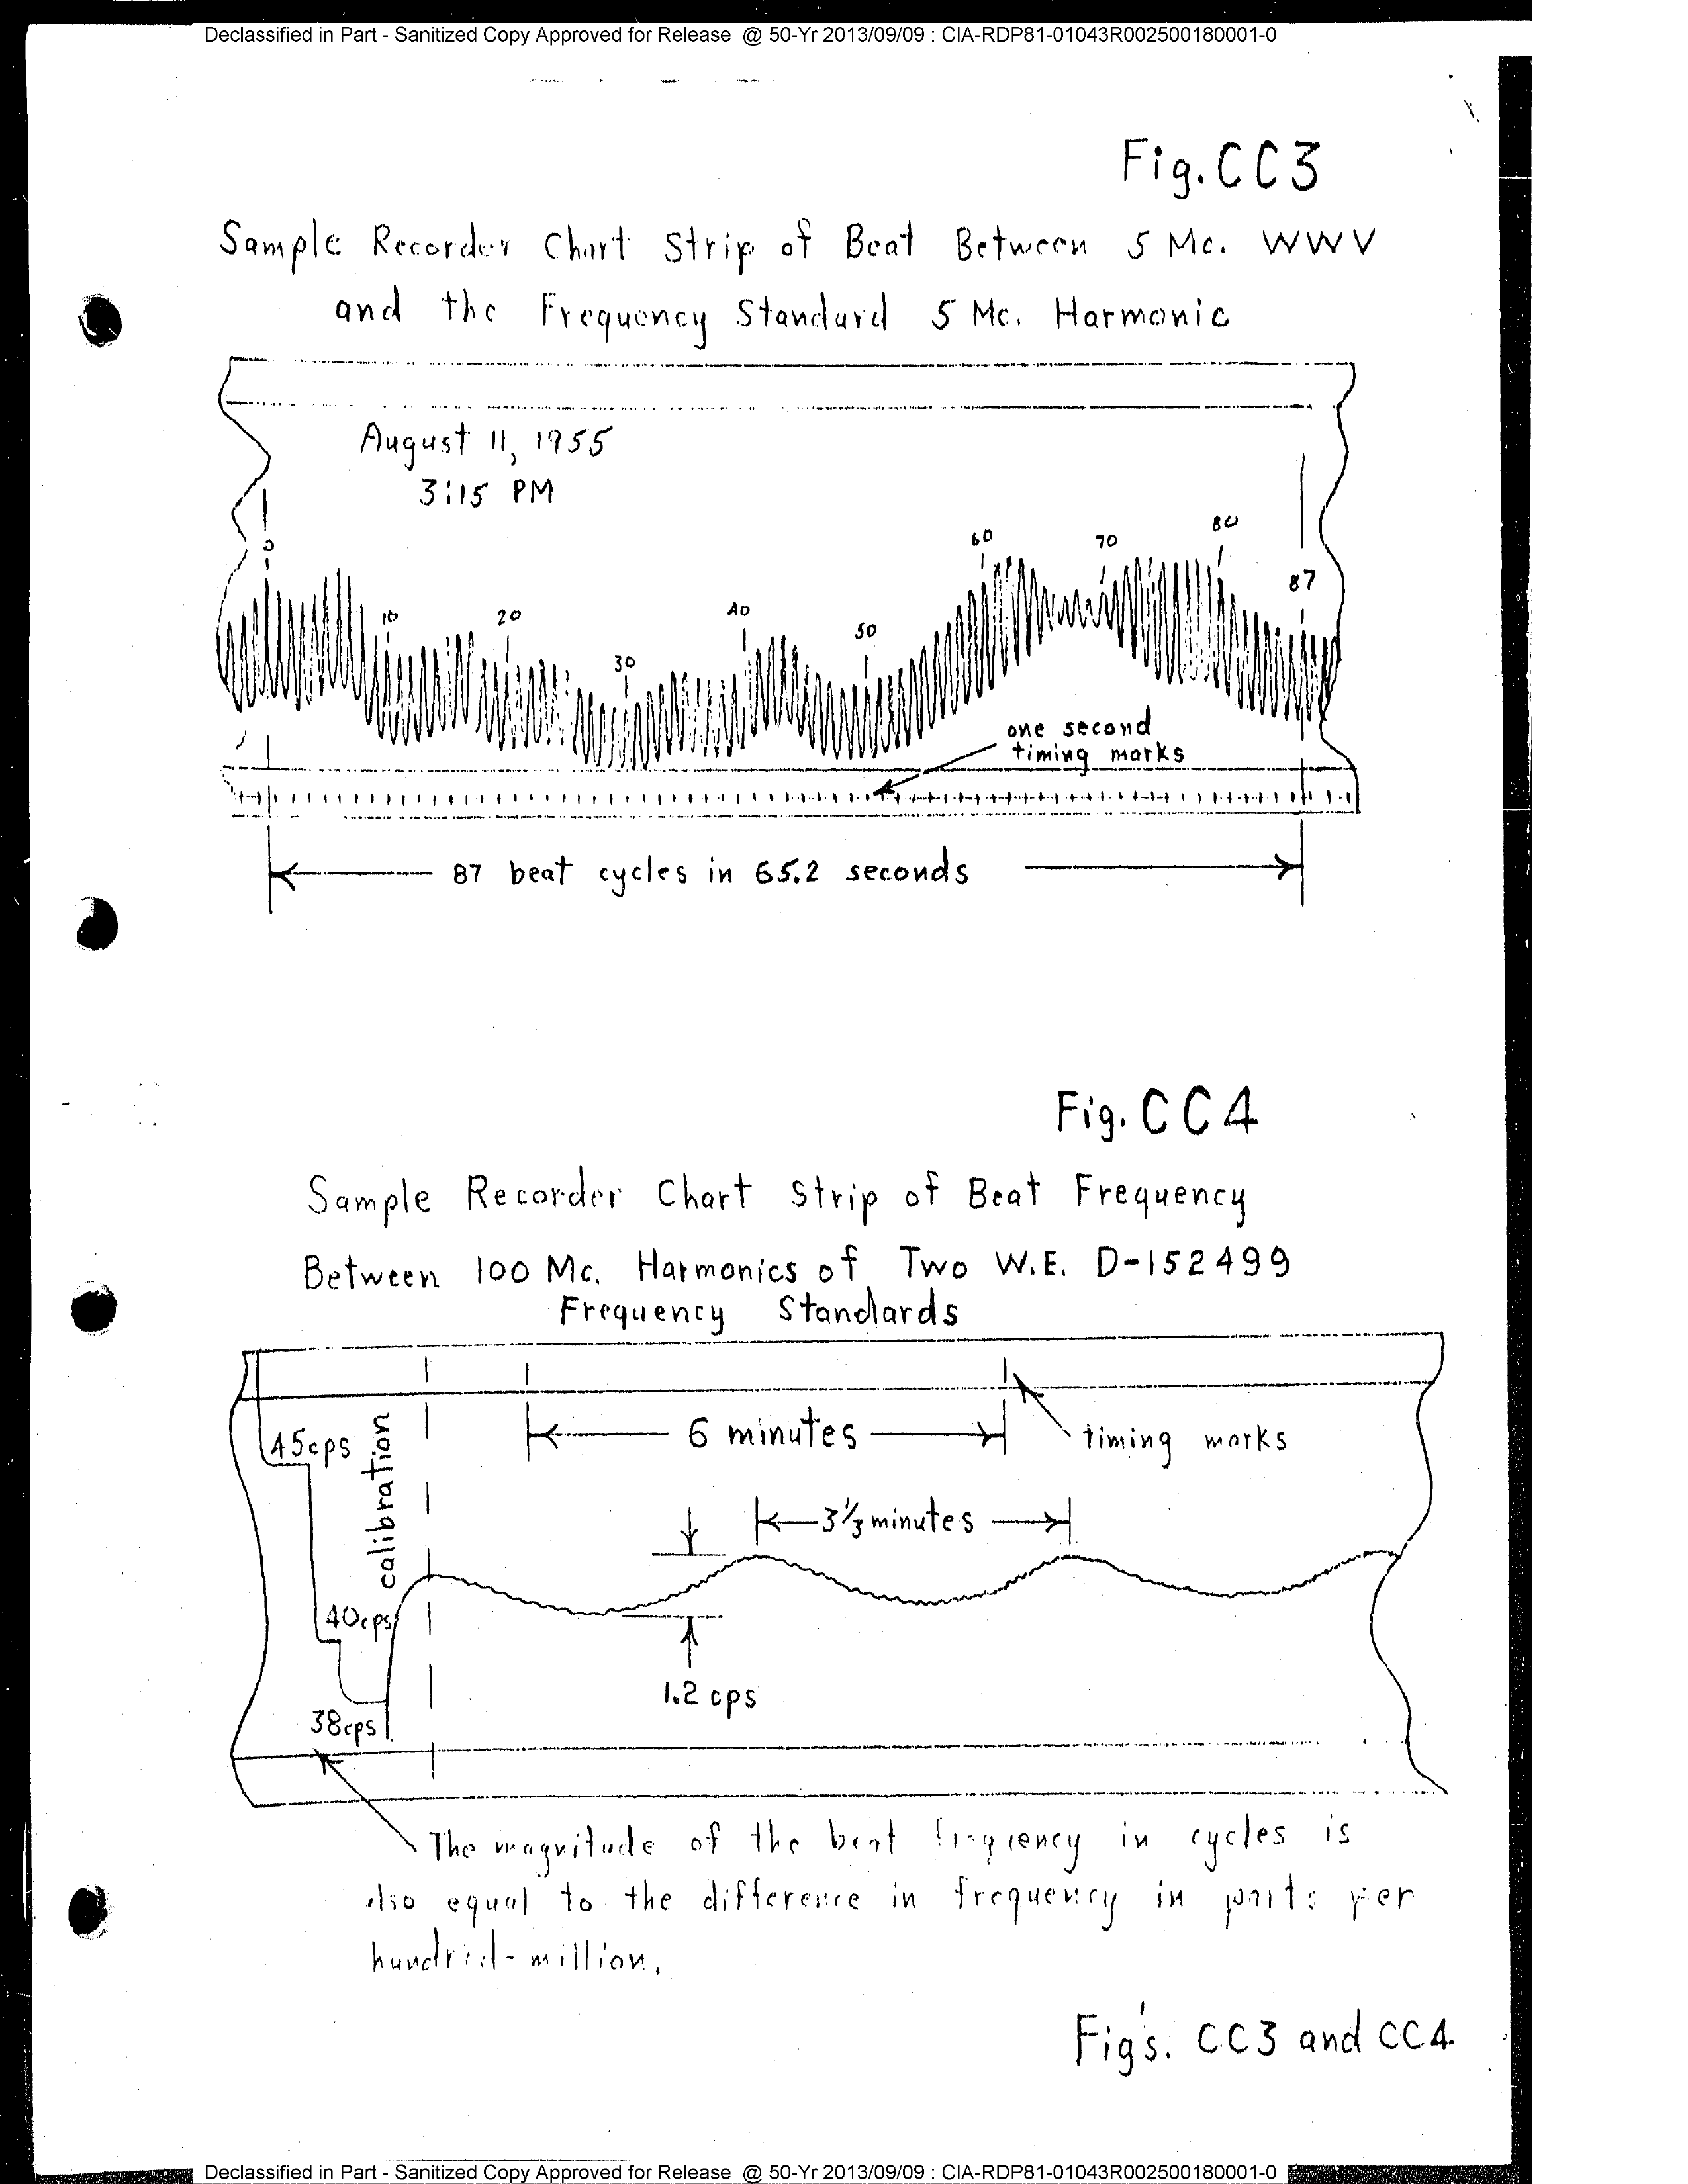 Declassified in Part - Sanitized Copy Approved for Release @ 50-Yr 2013/09/09 : CIA-RDP81-01043R002500180001-0
Fig. CC3
Sample Recorder Chart Strip of Beat Between 5 Mc. WWV
and the Frequency Standard 5 Mc. Harmonic
August 11, 1955
3:15 PM
0
10
20
30
40
50
60
70
80
87
one second
timing marks
87 beat cycles in 65.2 seconds
Fig. CC4
Sample Recorder Chart Strip of Beat Frequency
Between 100 Mc. Harmonics of Two W.E. D-152499
Frequency Standards
45cps
calibration
6 minutes
timing marks
3 1/3 minutes
40cps
1.2 cps
38cps
The magnitude of the beat frequency in cycles is
also equal to the difference in frequency in parts per
hundred-million.
Fig's. CC3 and CC4
Declassified in Part - Sanitized Copy Approved for Release @ 50-Yr 2013/09/09 : CIA-RDP81-01043R002500180001-0